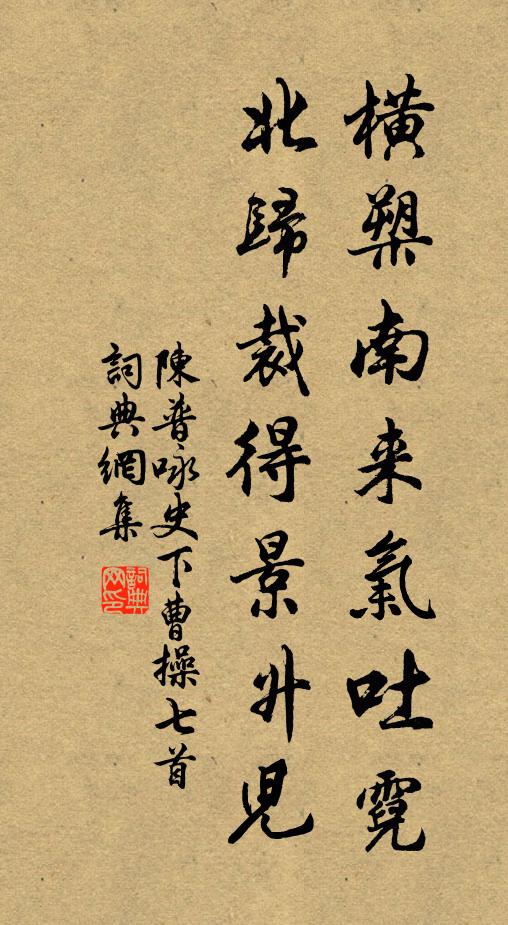 橫槊南来氣吐霓
北歸裁得景升兒
陳普咏史下曹操七首
詞典網集
詞典网印